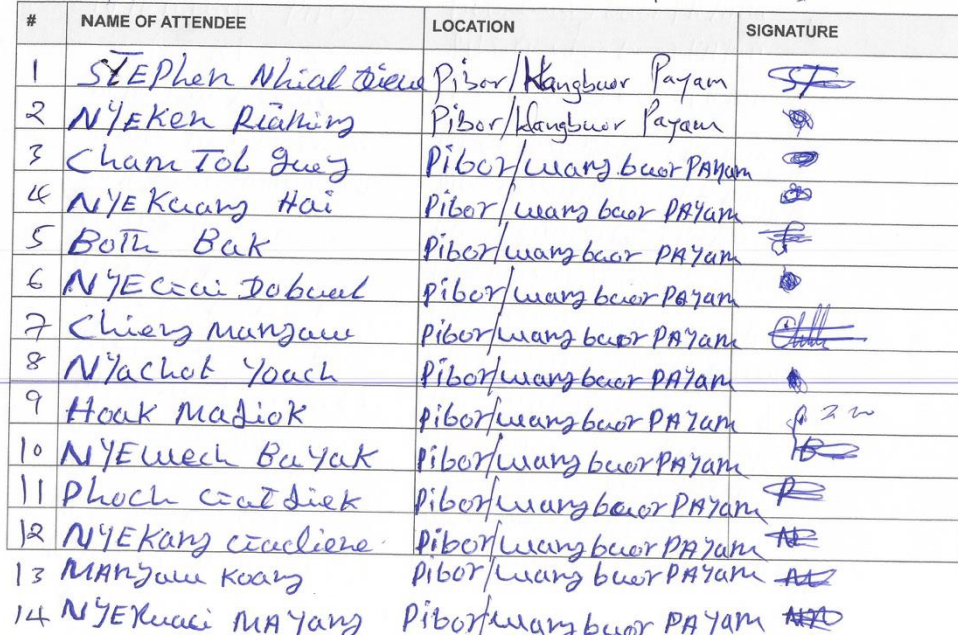 # NAME OF ATTENDEE LOCATION SIGNATURE
1 STEPhen Nhial Pibor/Wangbuor Payam
2 NYEKen Pibor/Wangbuor Payam
3 Cham Tob Guey Pibor/wang buor PAYam
4 NYEKuang Hai Pibor/wang buor PAYam
5 Both Bak Pibor/wang buor PAYam
6 Dobual Pibor/wang buor PAYam
7 Chieng Mangaw Pibor/wang buor PAYam
8 NYachot Yoach Pibor/wang buor PAYam
9 Hoak Madiok Pibor/wang buor PAYam
10 NYEwech BaYak Pibor/wang buor PAYam
11 Phoch Pibor/wang buor PAYam
12 NYEKang Pibor/wang buor PAYam
13 Koang Pibor/wang buor PAYam
14 MAYang Pibor/wang buor PAYam